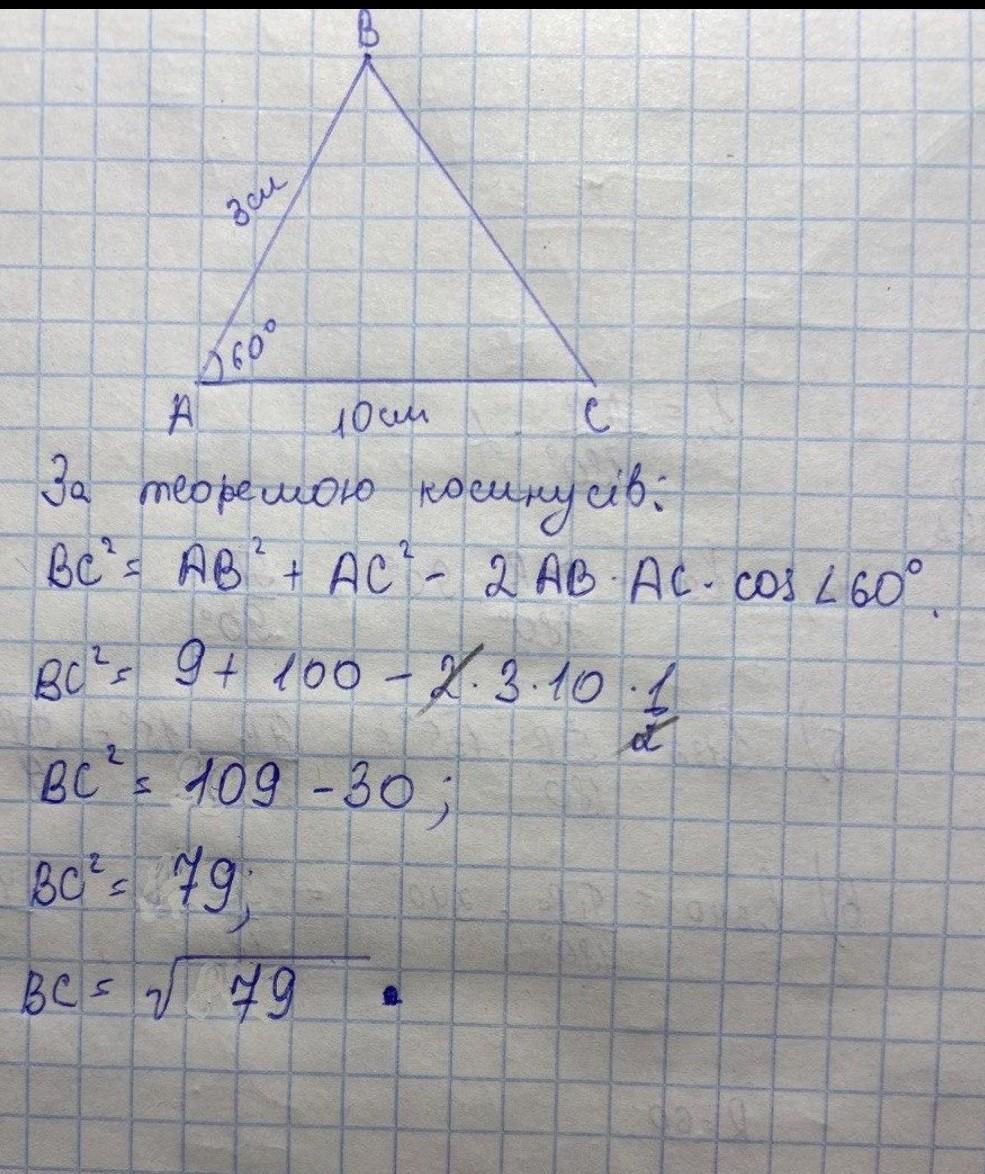 B
3см
60°
A
10см
C
За теоремою косинусів:
BC² = AB² + AC² - 2AB · AC · cos∠60°.
BC² = 9 + 100 - 2 · 3 · 10 · 1/2
BC² = 109 - 30;
BC² = 79;
BC = √79.